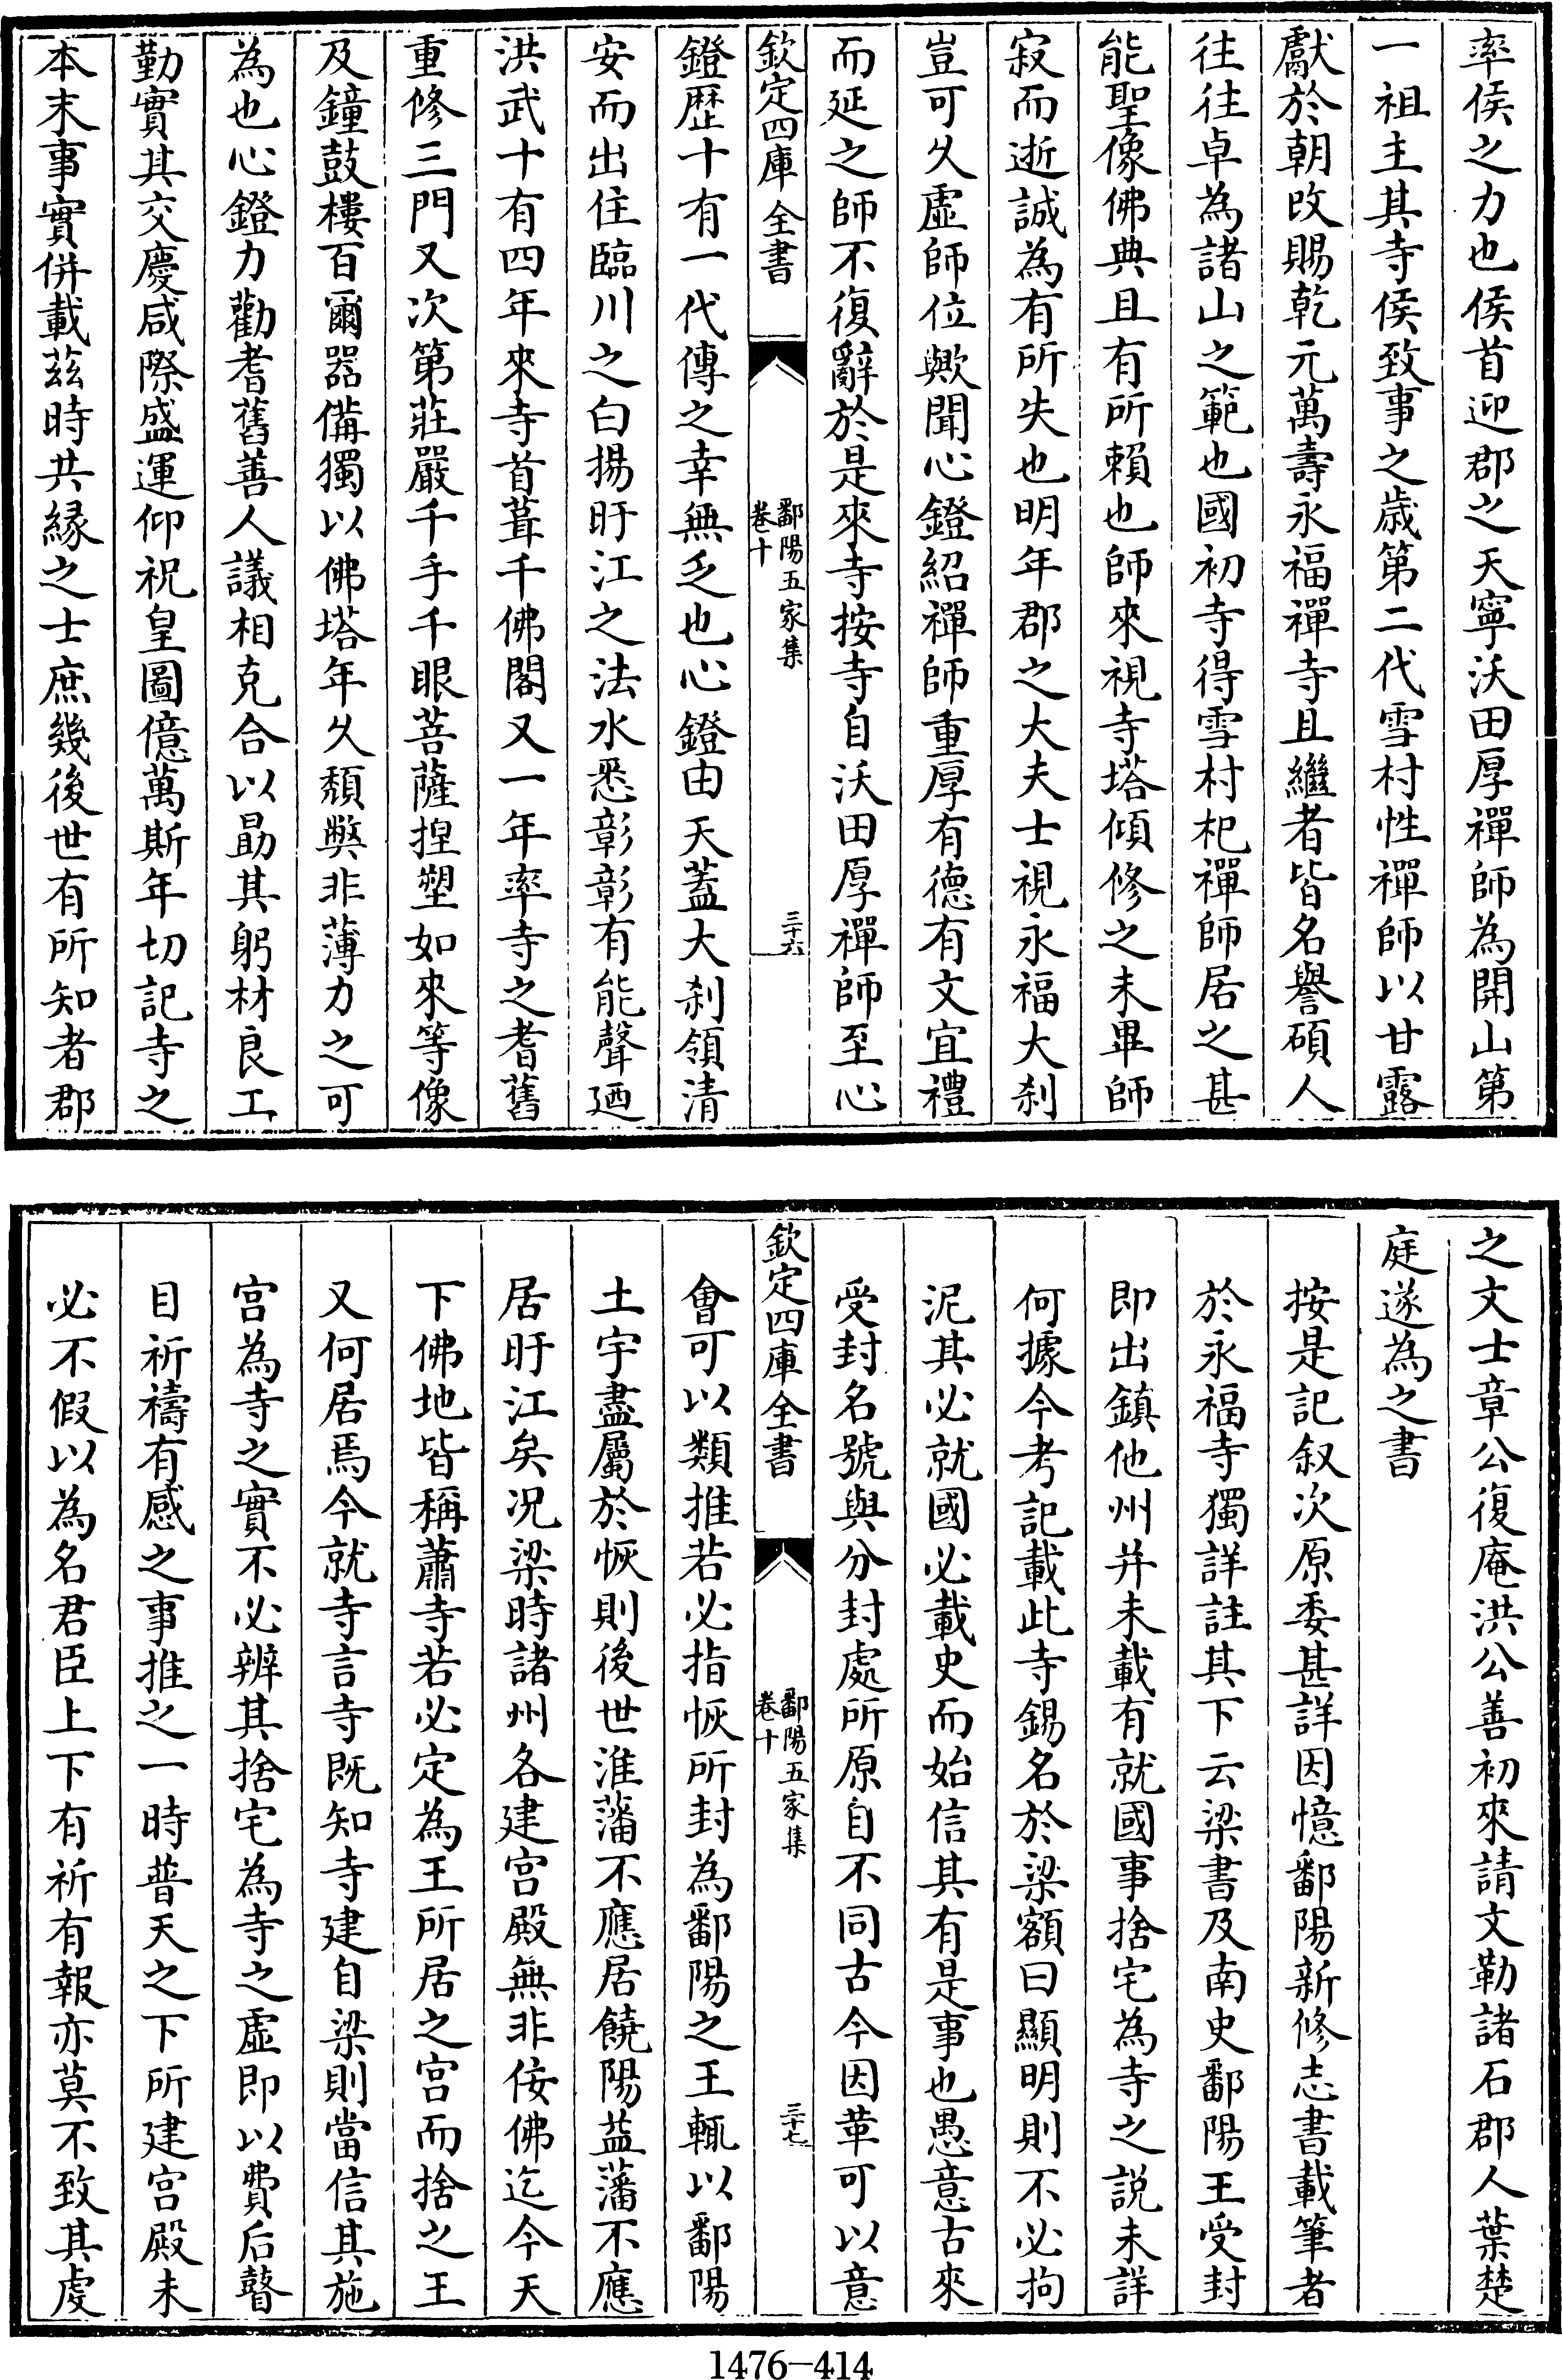 率侯之力也侯首迎郡之天寧沃田厚禪師為開山第
一祖主其寺侯致事之歲第二代雪村性禪師以甘露
獻於朝改賜乾元萬壽永福禪寺且繼者皆名譽碩人
往往卓為諸山之範也國初寺得雪村杞禪師居之甚
能聖像佛典且有所賴也師來視寺塔傾修之未畢師
寂而逝誠為有所失也明年郡之大夫士視永福大刹
豈可久虛師位歟聞心鐙紹禪師重厚有德有文宜禮
而延之師不復辭於是來寺按寺自沃田厚禪師至心
欽定四庫全書
鄱陽五家集
卷十
三十六
鐙歷十有一代傳之幸無乏也心鐙由天蓋大刹領清
安而出住臨川之白揚盱江之法水悉彰彰有能聲廼
洪武十有四年來寺首葺千佛閣又一年率寺之耆舊
重修三門又次第莊嚴千手千眼菩薩揑塑如來等像
及鐘鼓樓百爾器備獨以佛塔年久頹獘非薄力之可
為也心鐙力勸耆舊善人議相克合以勗其躬材良工
勤實其交慶咸際盛運仰祝皇圖億萬斯年切記寺之
本末事實併載茲時共緣之士庶幾後世有所知者郡
之文士章公復庵洪公善初來請文勒諸石郡人葉楚
庭遂為之書
按是記叙次原委甚詳因憶鄱陽新修志書載筆者
於永福寺獨詳註其下云梁書及南史鄱陽王受封
即出鎮他州并未載有就國事捨宅為寺之說未詳
何據今考記載此寺錫名於梁額曰顯明則不必拘
泥其必就國必載史而始信其有是事也愚意古來
受封名號與分封處所原自不同古今因革可以意
欽定四庫全書
鄱陽五家集
卷十
三十七
會可以類推若必指恢所封為鄱陽之王輒以鄱陽
土宇盡屬於恢則後世淮藩不應居饒陽益藩不應
居盱江矣况梁時諸州各建宮殿無非佞佛迄今天
下佛地皆稱蕭寺若必定為王所居之宮而捨之王
又何居焉今就寺言寺既知寺建自梁則當信其施
宮為寺之實不必辨其捨宅為寺之虛即以費后瞽
目祈禱有感之事推之一時普天之下所建宮殿未
必不假以為名君臣上下有祈有報亦莫不致其虔
1476—414